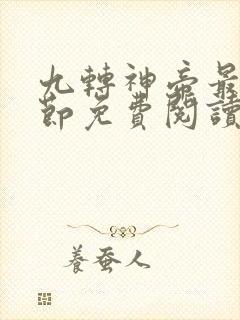 九轉神帝最
節免費閱讀
養蚕人